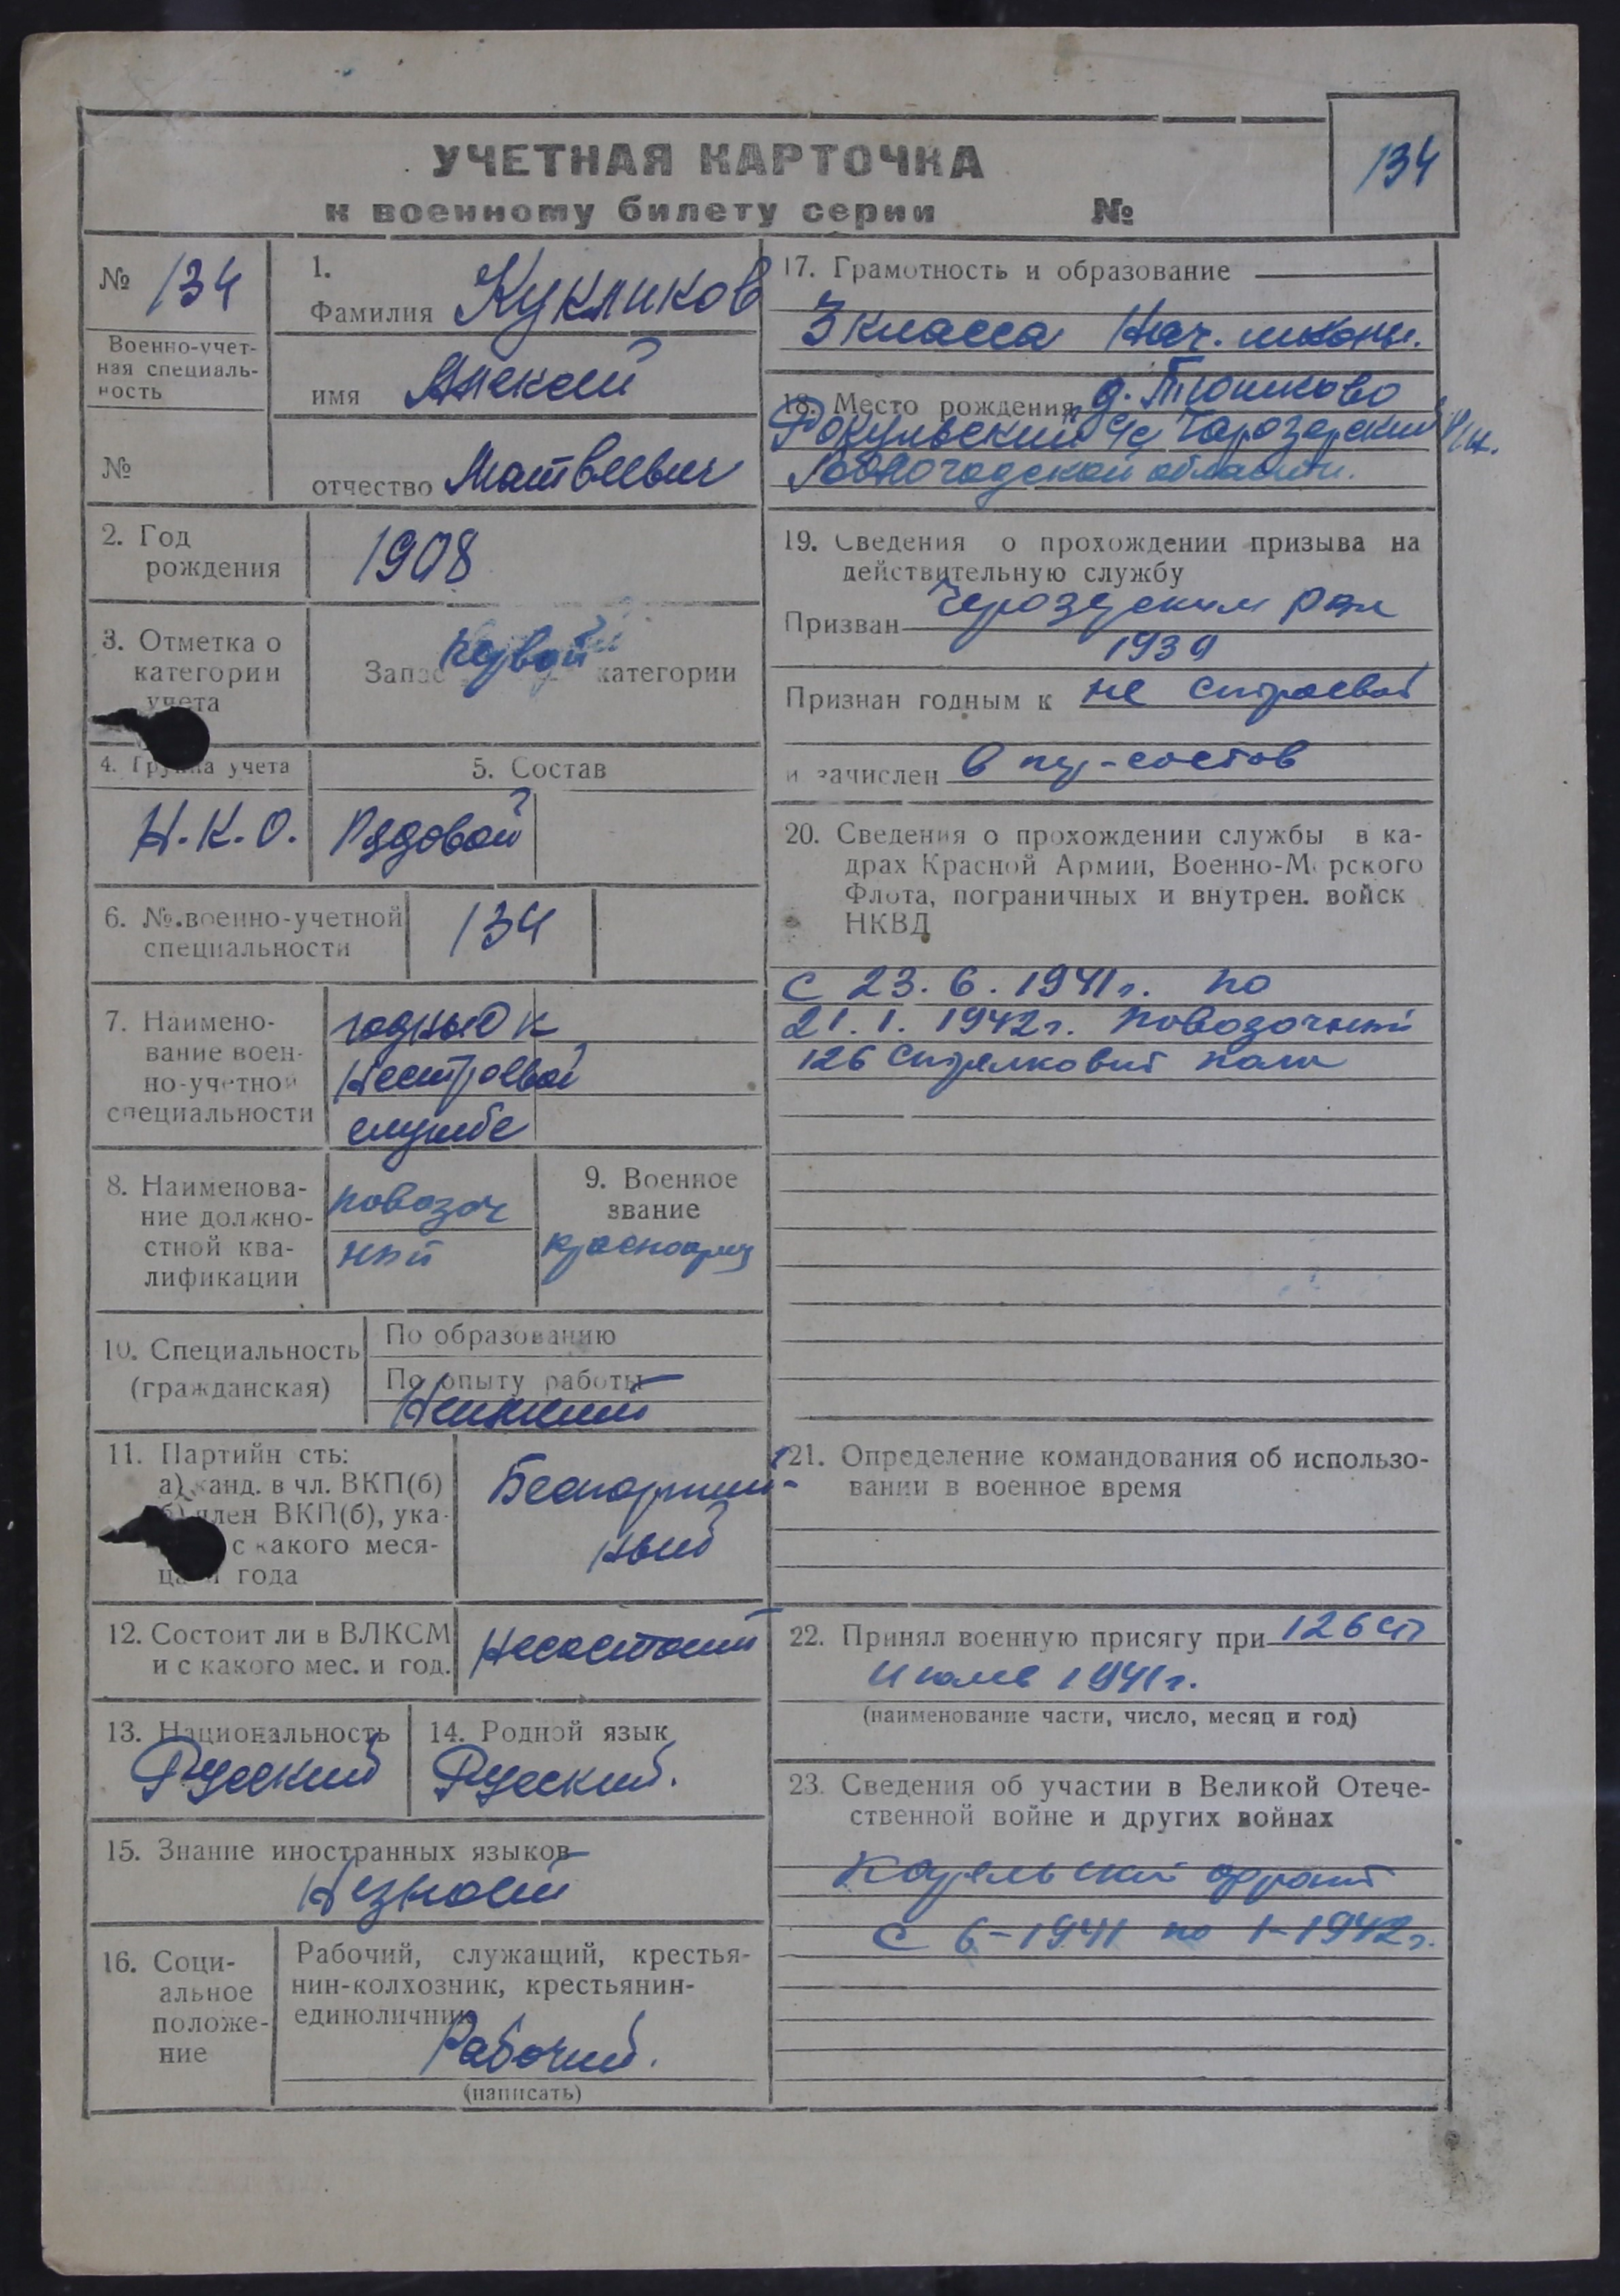 УЧЕТНАЯ КАРТОЧКА
к военному билету серии №
134
№ 134
Военно-учет-
ная специаль-
ность
№
1.
Фамилия Кукликов
имя Алексей
отчество Матвеевич
2. Год
рождения
1908
3. Отметка о
категории
учета
Запас Первой категории
4. Группа учета
Н.К.О.
5. Состав
Рядовой
6. № военно-учетной
специальности
134
7. Наимено-
вание воен-
но-учетной
специальности
годный к
нестроевой
службе
8. Наименова-
ние должно-
стной ква-
лификации
повозоч
ный
9. Военное
звание
красноармц
10. Специальность
(гражданская)
По образованию
По опыту работы
Неимеит
11. Партийн сть:
а) канд. в чл. ВКП(б)
б) член ВКП(б), ука-
с какого меся-
ца и года
Беспартий-
ный
12. Состоит ли в ВЛКСМ
и с какого мес. и год.
Несостоит
13. Национальность
Русский
14. Родной язык
Русский.
15. Знание иностранных языков
Незнает
16. Соци-
альное
положе-
ние
Рабочий, служащий, крестья-
нин-колхозник, крестьянин-
единоличник
Рабочий.
(написать)
17. Грамотность и образование
3 класса Нач. школы.
18. Место рождения д. Тюшково
Рокульский с/с Чарозерский
Вологодской области.
19. Сведения о прохождении призыва на
действительную службу
Призван Чарозерским рвк
1939
Признан годным к не строевой
и зачислен в пер-состав
20. Сведения о прохождении службы в ка-
драх Красной Армии, Военно-М рского
Флота, пограничных и внутрен. войск
НКВД
с 23.6.1941г. по
21.1.1942г. повозочный
126 стрелковый полк
21. Определение командования об использо-
вании в военное время
22. Принял военную присягу при 126 сп
Июль 1941г.
(наименование части, число, месяц и год)
23. Сведения об участии в Великой Отече-
ственной войне и других войнах
Карельский фронт
с 6-1941 по 1-1942г.